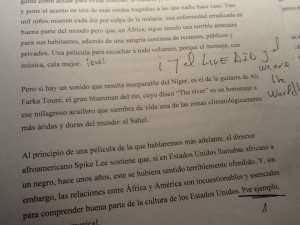 y pone el acento en una de esas verdades trágicas a las que nadie hace caso.
mil niños mueren cada día por culpa de la malaria, una enfermedad erradicada en
buena parte del mundo pero que, en África, sigue siendo una terrible amenaza
para sus habitantes, además de una sangría continua de recursos públicos y
privados. Una película para escuchar a todo volumen, porque el mensaje, con
música, cala mejor.
¡ y el
Pero si hay un sonido que resulta inseparable del Níger, es el de la guitarra de Ali
Farka Touré, el gran bluesman del río, cuyo disco "The river" es un homenaje a
ese milagroso acuífero que siembra de vida una de las zonas climatológicamente
más áridas y duras del mundo: el Sahel.
Al principio de una película de la que hablaremos más adelante, el director
afroamericano Spike Lee sostiene que, si en Estados Unidos llamabas africano a
un negro, hace unos años, este se hubiera sentido terriblemente ofendido. Y, sin
embargo, las relaciones entre África y América son incuestionables y esenciales
para comprender buena parte de la cultura de los Estados Unidos. Por ejemplo,